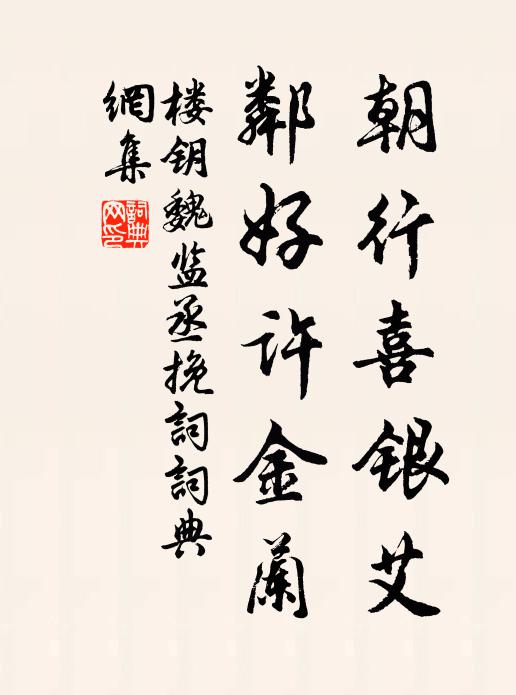 朝行喜银艾
鄰好许金蘭
楼钥魏监丞挽詞詞典
網集
詞典網印